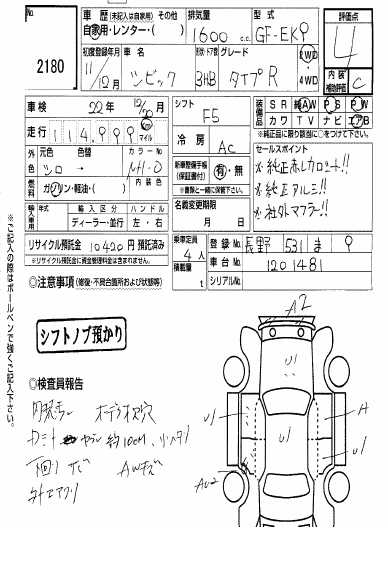 2180
車歴 (未記入は自家用) その他
自家用・レンター・( )
排気量
1600 c.c.
型式
GF-EK9
評価点
4
初度登録年月
11/12月
車名
シビック
形状・ドア数
3HB
グレード
タイプR
2WD・4WD
内装補助評価
C
車検
22年 12/20月
シフト
F5
装備品
SR 純AW PS PW
カワ TV ナビ エアB
※純正品に限り該当に○をつけて下さい。
走行
114,999
マイル
冷房
AC
セールスポイント
※純正赤レカロシート!!
※純正アルミ!!
※社外マフラー!!
外色
元色 色替
シロ
カラーNo.
NH-0
燃料
ガソリン・軽油・( )
内装色
新車整備手帳
(保証書付)
有・無
※書類と一緒に保管して下さい。
輸入車用
年式 輸入区分 ハンドル
ディーラー・並行 左・右
名義変更期限
月 日
リサイクル預託金 10420 円預託済み
※リサイクル預託金に資金管理料金は含まれません。
乗車定員
4人
積載量
t
登録No. 長野 531 ま 9
車台No. 1201481
シリアルNo.
◎注意事項 (修復・不具合箇所および状態等)
シフトノブ預かり
※ご記入の際はボールペンで強くご記入下さい。
◎検査員報告
下回りサビ AWキズ
A2
U1
U1
A
U1
U1